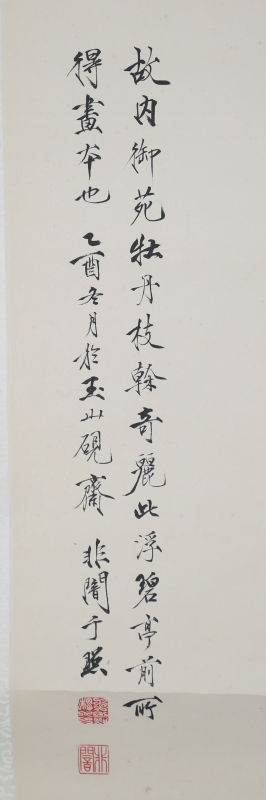 故内御苑牡丹枝榦奇麗此浮碧亭前所
得畫本也 乙酉冬月於玉山硯齋 非闇于照